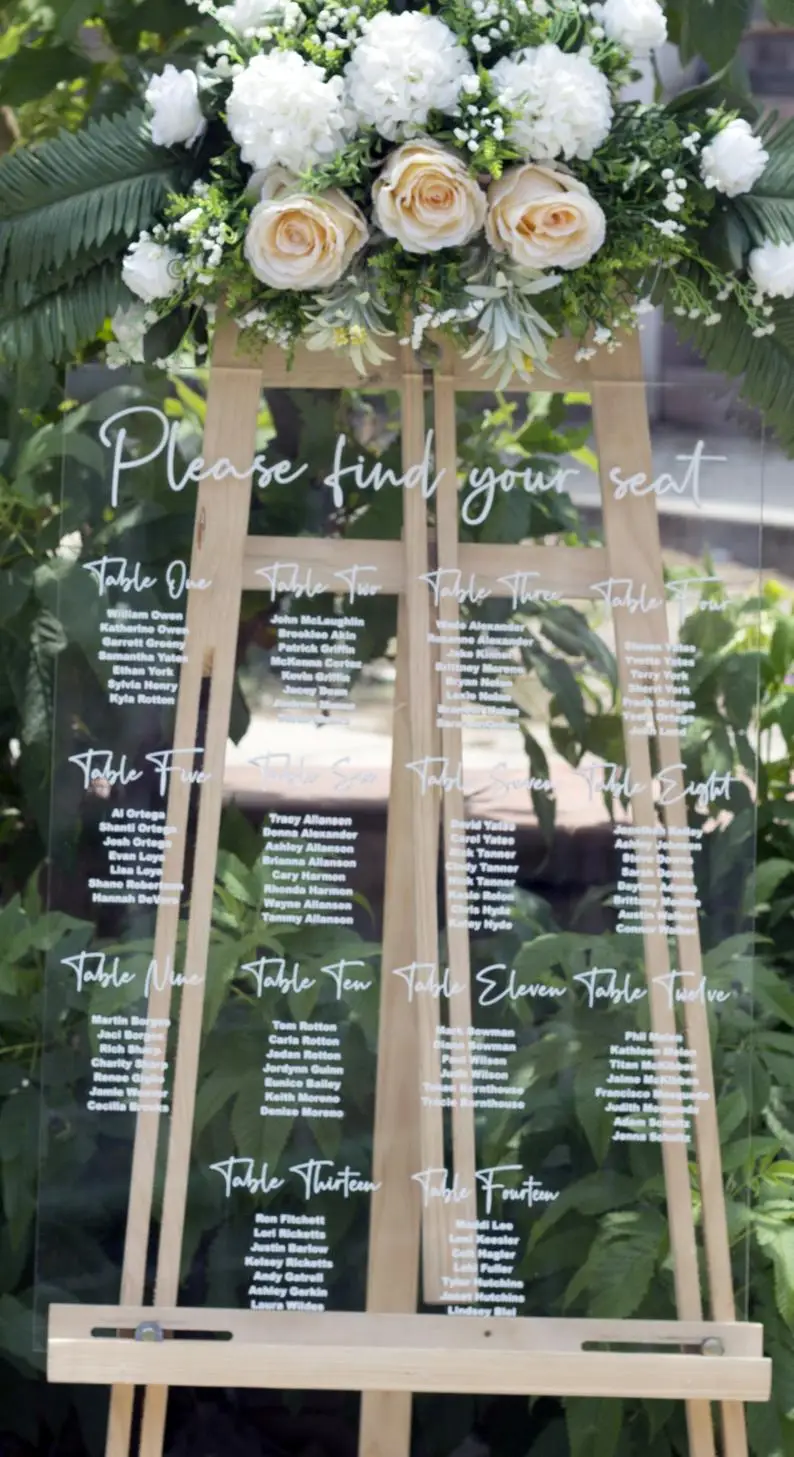 Please find your seat
Table One
William Owen
Katharine Owen
Garrett Greeny
Samantha Yates
Ethan York
Sylvia Henry
Kyla Rotton
Table Two
John McLaughlin
Brooklee Akin
Patrick Griffin
McKanna Cortez
Kevin Griffin
Jacey Dean
Table Three
Wade Alexander
Roxanne Alexander
Jake
Brittney Moreno
Bryan Nolan
Lexie Nolan
Brandon Nolan
Table Four
Steven Yates
Yvette Yates
Terry York
Sherri York
Frank Ortega
Ortega
John Lund
Table Five
Al Ortega
Shanti Ortega
Josh Ortega
Evan Loya
Lisa Loya
Shane Robertson
Hannah DeVore
Table Six
Tracy Allanson
Donna Alexander
Ashley Allanson
Brianna Allanson
Cary Harmon
Rhonda Harmon
Wayne Allanson
Tammy Allanson
Table Seven
David Yates
Carol Yates
Rick Tanner
Cindy Tanner
Nick Tanner
Kasie Rolon
Chris Hyde
Kasey Hyde
Table Eight
Jonathan Kelley
Ashley Johnson
Steve Downs
Sarah Downs
Dayton Adams
Brittany
Austin Walker
Connor Walker
Table Nine
Martin Borges
Jaci Borges
Rich Sharp
Charity Sharp
Renee
Jamie Weaver
Cecilia Brooks
Table Ten
Tom Rotton
Carla Rotton
Jadan Rotton
Jordynn Guinn
Eunice Bailey
Keith Moreno
Denise Moreno
Table Eleven
Mark Bowman
Diane Bowman
Paul Wilson
Judi Wilson
Barnthouse
Tracie Barnthouse
Table Twelve
Phil Melen
Kathleen Melen
Titan McKibben
Jaime McKibben
Francisco Mosqueda
Judith Mosqueda
Adam Schultz
Jenna Schultz
Table Thirteen
Ron Fitchett
Lori Ricketts
Justin Barlow
Kelsey Ricketts
Andy Gatrell
Ashley Gerkin
Laura Wildes
Table Fourteen
Maddi Lee
Lexi Keesler
Colt Hagler
Fuller
Tyler Hutchins
Janet Hutchins
Lindsey Biel